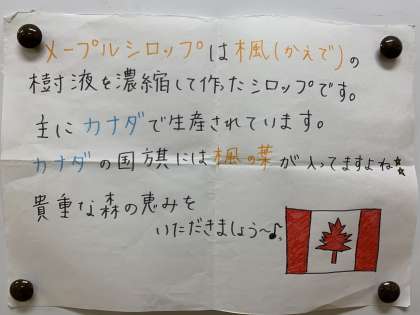 メープルシロップは楓(かえで)の
樹液を濃縮して作ったシロップです。
主にカナダで生産されています。
カナダの国旗には楓の葉が入ってますよね☆
貴重な森の恵みを
いただきましょう〜♪